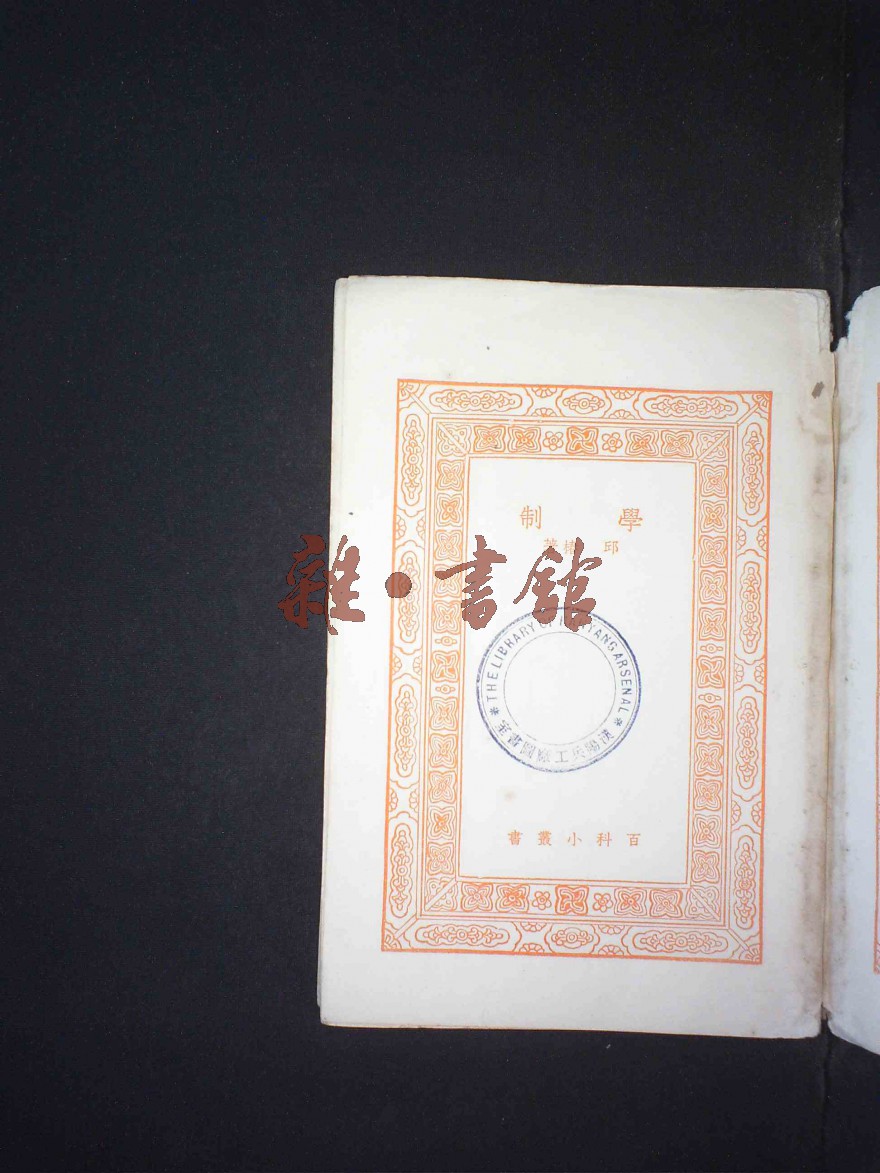 學制
邱椿著
雜·書館
THE LIBRARY HANYANG ARSENAL
漢陽兵工廠圖書
百科小叢書